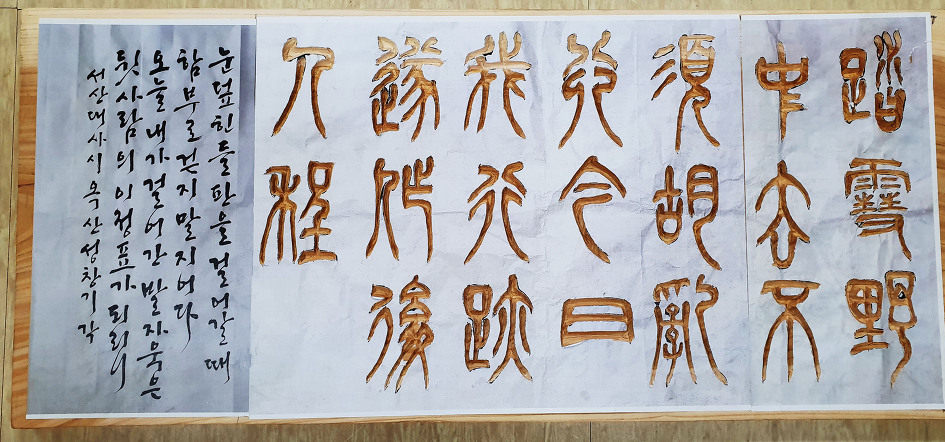 踏雪野
中去不
須胡亂
行今日
我行跡
遂作後
人程
눈덮힌 들판을 걸어갈 때
함부로 걷지 말지어다
오늘 내가 걸어간 발자욱은
뒷사람의 이정표가 되리니
서산대사시 옥산 성창기 각